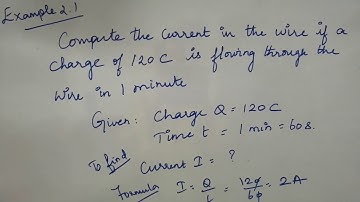 Example 2.1
Compute the current in the wire if a
charge of 120 C is flowing through the
wire in 1 minute
Given: Charge Q = 120 C
Time t = 1 min = 60 s.
To find
Current I = ?
Formula I = Q/t = 120/60 = 2A